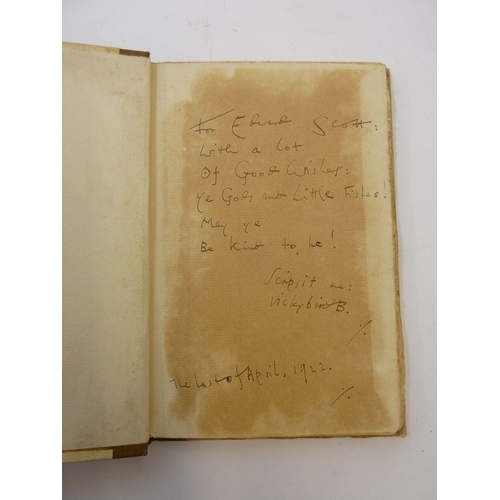 For Edward Scott:
with a Lot
Of Good Wishes:
Ye Gods and Little Fishes!
May ye
Be kind to he!
Scripsit
Vickybird B.
The last of April, 1922.